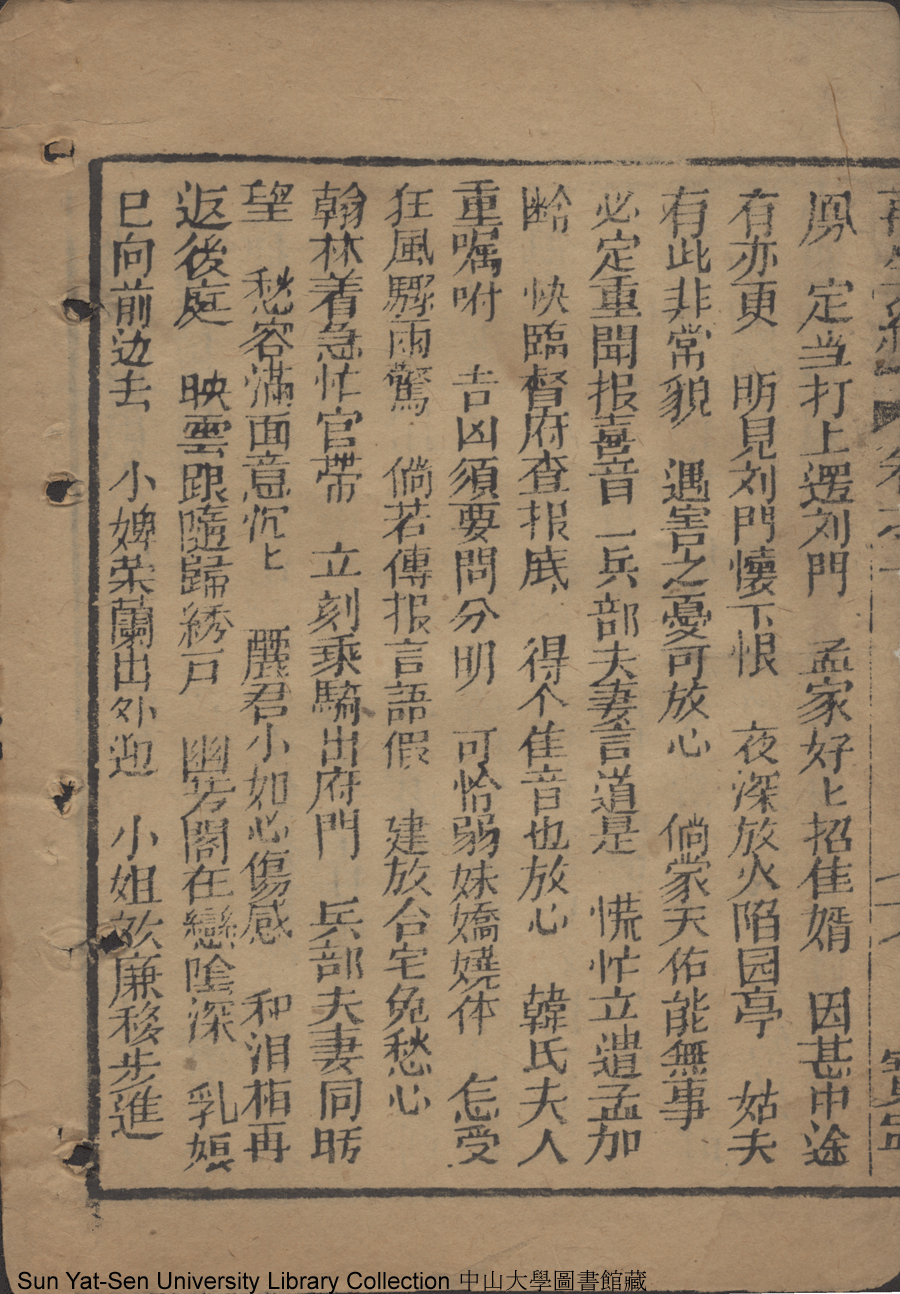 鳳　定当打上逻刘門　孟家好〻招佳婿　因甚中途
有亦更　明見刘門懐不恨　夜深放火陷园亭　姑夫
有此非常貌　遇害之憂可放心　倘蒙天佑能無事
必定重聞报喜音　一兵部夫妻言道是　慌忙立遣孟加
齡　快臨督府查报底　得个佳音也放心　韓氏夫人
重嘱咐　吉凶須要問分明　可怜弱妹嬌嬈体　怎受
狂風驟雨驚　倘若傳报言語假　建放合宅免愁心
翰林着急忙官带　立刻乘騎出府門　兵部夫妻同㫄
望　愁容满面意沉〻　麗君小如心傷感　和泪栢再
返後庭　映雲跟隨歸綉戸　幽芳閣在戀陰深　乳娘
已向前边去　小婢柔蘭出外迎　小姐欢廉移步進
Sun Yat-Sen University Library Collection 中山大學圖書館藏